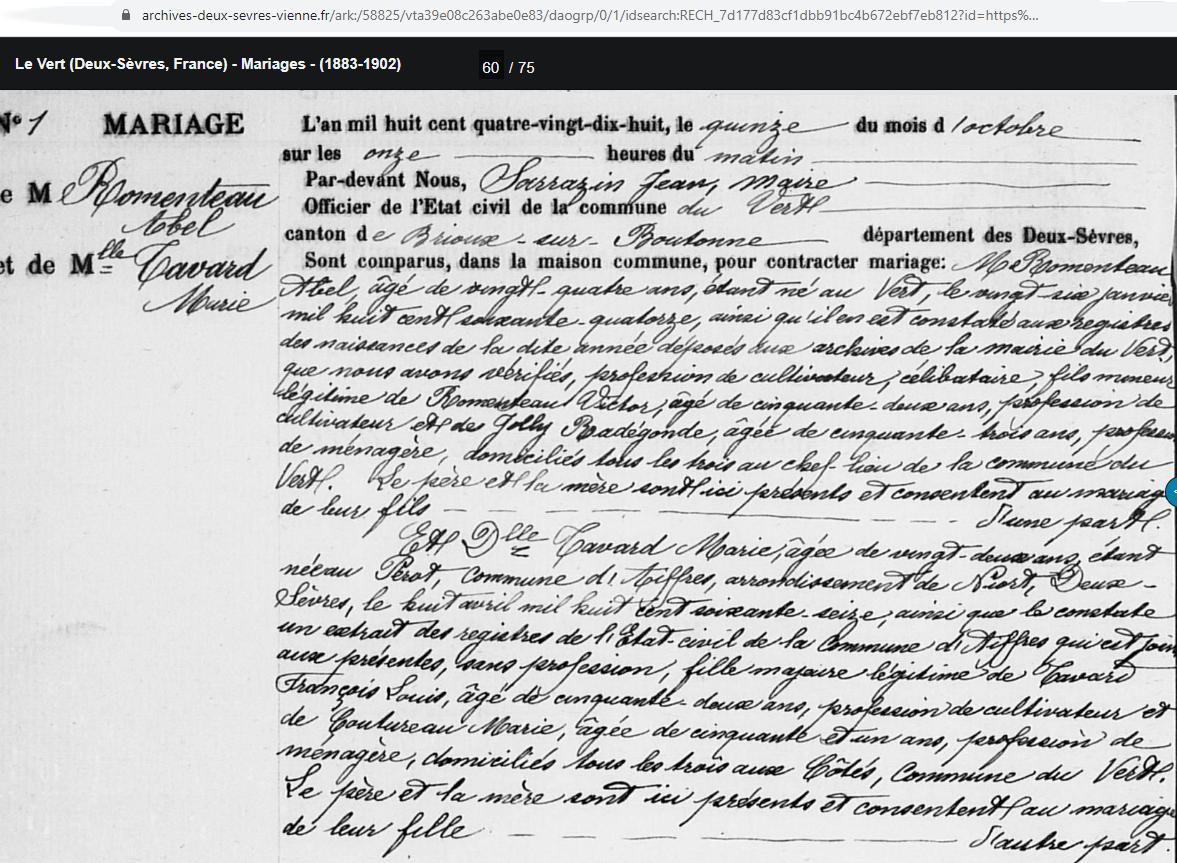 archives-deux-sevres-vienne.fr/ark:/58825/vta39e08c263abe0e83/daogrp/0/1/idsearch:RECH_7d177d83cf1dbb91bc4b672ebf7eb812?id=https%...
Le Vert (Deux-Sèvres, France) - Mariages - (1883-1902) 60 / 75
N° 1 MARIAGE
e M Romenteau
Abel
et de Mlle Tavard
Marie
L'an mil huit cent quatre-vingt-dix-huit, le quinze du mois d'octobre
sur les onze heures du matin
Par-devant Nous, Sarrazin Jean, maire
Officier de l'Etat civil de la commune du Vert
canton de Brioux-sur-Boutonne département des Deux-Sèvres,
Sont comparus, dans la maison commune, pour contracter mariage: M. Romenteau
Abel, âgé de vingt-quatre ans, étant né au Vert, le vingt-six janvier
mil huit cent soixante-quatorze, ainsi qu'il en est constaté aux registres
des naissances de la dite année déposés aux archives de la mairie du Vert,
que nous avons vérifiés, profession de cultivateur, célibataire, fils mineur
légitime de Romenteau Victor, âgé de cinquante-deux ans, profession de
cultivateur et des Jolly Radégonde, âgée de cinquante-trois ans, profession
de ménagère, domiciliés tous les trois au chef-lieu de la commune du
Vert. Le père et la mère sont ici présents et consentent au mariage
de leur fils d'une part.
Et Dlle Tavard Marie, âgée de vingt-deux ans, étant
née au Pérot, commune d'Aiffres, arrondissement de Niort, Deux-
Sèvres, le huit avril mil huit cent soixante-seize, ainsi que le constate
un extrait des registres de l'Etat-civil de la commune d'Aiffres qui est joint
aux présentes, sans profession, fille majeure légitime de Tavard
François Louis, âgé de cinquante-deux ans, profession de cultivateur et
de Coutureau Marie, âgée de cinquante et un ans, profession de
ménagère, domiciliés tous les trois aux Côtés, commune du Vert.
Le père et la mère sont ici présents et consentent au mariage
de leur fille d'autre part.